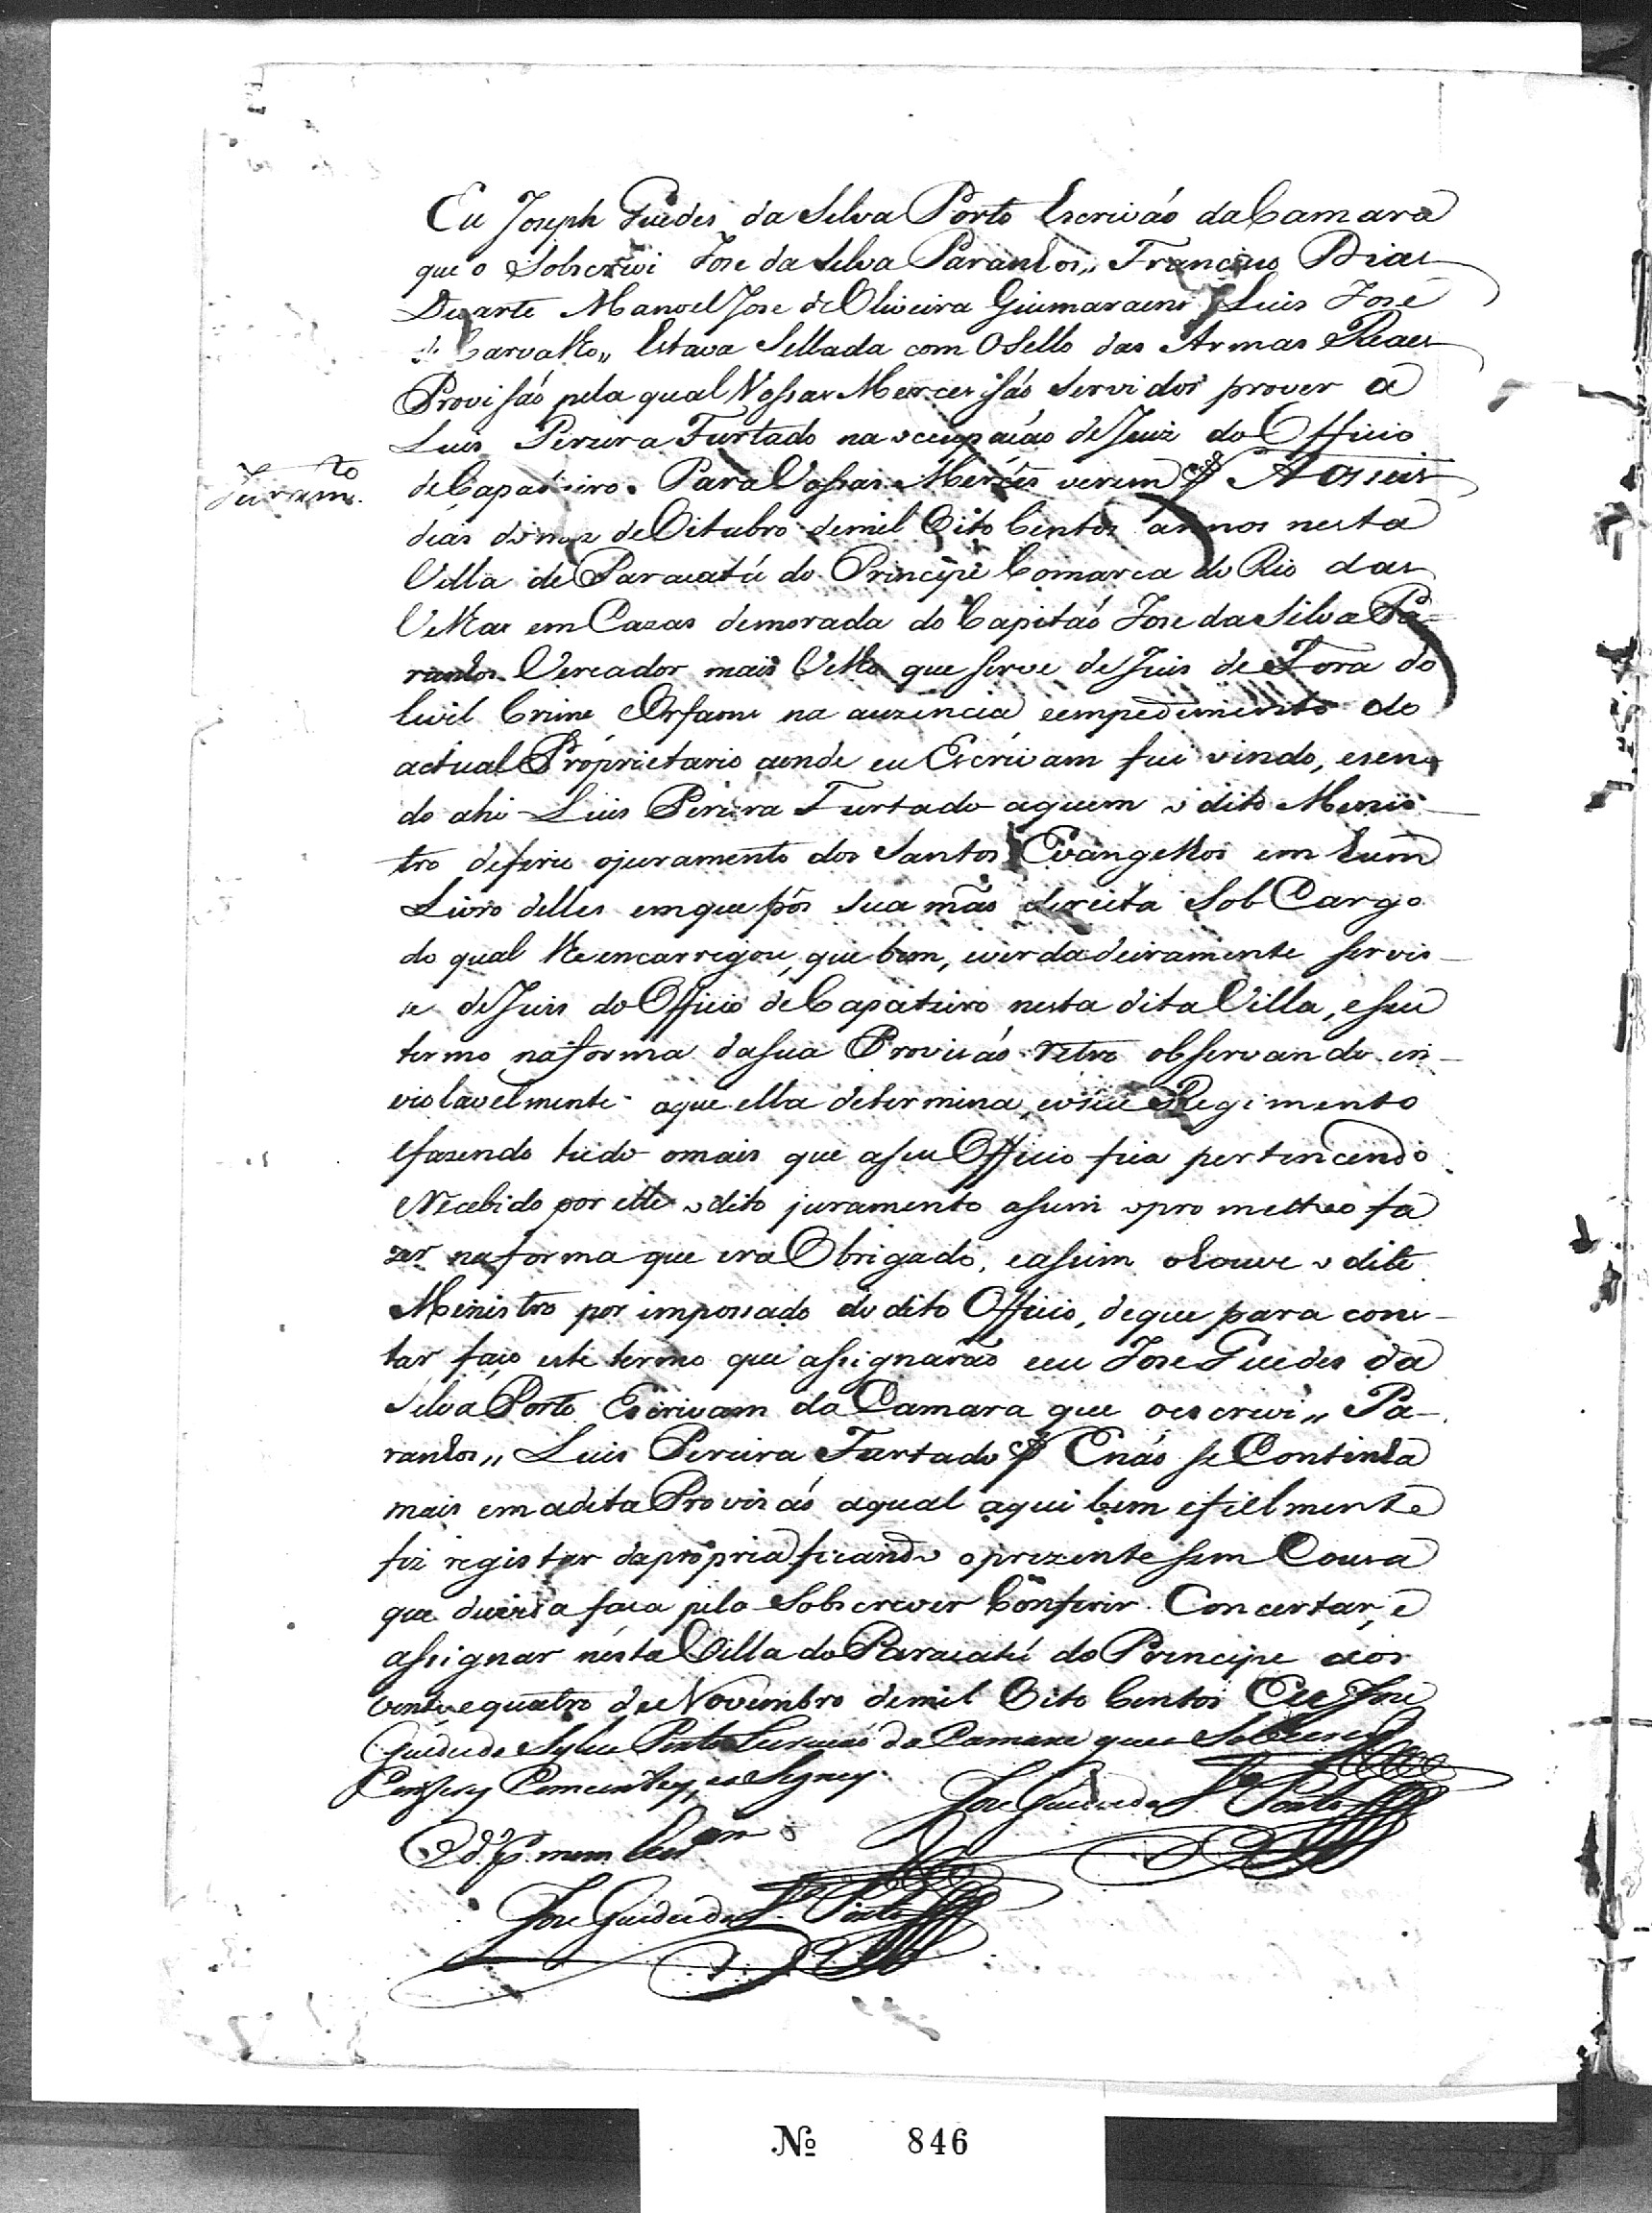 Eu Joseph Guedes da Silva Porto Escrivaó da Camara
que o Sobscrevi Jose da Silva Paranhos,, Francisco Dias
Duarte Manoel Jose de Oliveira Guimaraens Luis José
de Carvalho,, Estava Sellada com O Sello das Armas Reaes
Provisaó pela qual Vossas Merces saó Servidos prover a
Luis Pereira Furtado na occupaçaó de Juiz do Officio
de Çapateiro. Para Vossas Mercês verem Aos seis
Juram.to
dias do mes de Oitubro de mil Oito Centos annos nesta
Villa de Paracatú do Principe Comarca do Rio das
Velhas em Cazas de morada do Capitaó Jose da Silva Pa=
ranhos Vereador mais Velho que serve de Juis de Fora do
Civil Crime Orfams na auzencia e empedimento do
actual Proprietario aonde eu Escrivam fui vindo, e sen
do ahi Luis Pereira Furtado a quem o dito Menis-
tro deferiu o juramento dos Santos Evangelhos em hum
Livro delles em que pôs sua maó direita Sob Cargo
do qual lhe encarregou, que bem, e verdadeiramente servis-
se de Juis do Officio de Çapateiro nesta dita Villa, e seu
termo na forma da sua Provisaó retro observando in-
violavelmente aque ella determina, e o seu Regimento
e fazendo tudo o mais que a seu Officio fica pertencendo
E Recebido por elle o dito juramento assim o prometteo fa
zer na forma que era Obrigado, e assim o houve o dito
Ministro por impossado do dito Officio, de que para cons-
tar faço este termo que assignaraó e eu Jose Guedes da
Silva Porto Escrivam da Camara que o escrevi,, Pa-
ranhos,, Luis Pereira Furtado E naó se Continha
mais em a dita Provisaó a qual aqui bem e fielmente
fiz registar da propria ficando o prezente sem Couza
que duvida faça pelo Sobscrever Conferir. Concertar, e
assignar nesta Villa do Paracatú do Principe aos
vente e quatro de Novembro de mil Oito Centos Eu Jose
Guedes da Sylva Porto Escrivaó da Camara que o Sobscrevy
Confery Concertey, e asSigney.
Jose Guedes da S.ª Porto
Jose Guedes da S.ª Porto
Nº 846